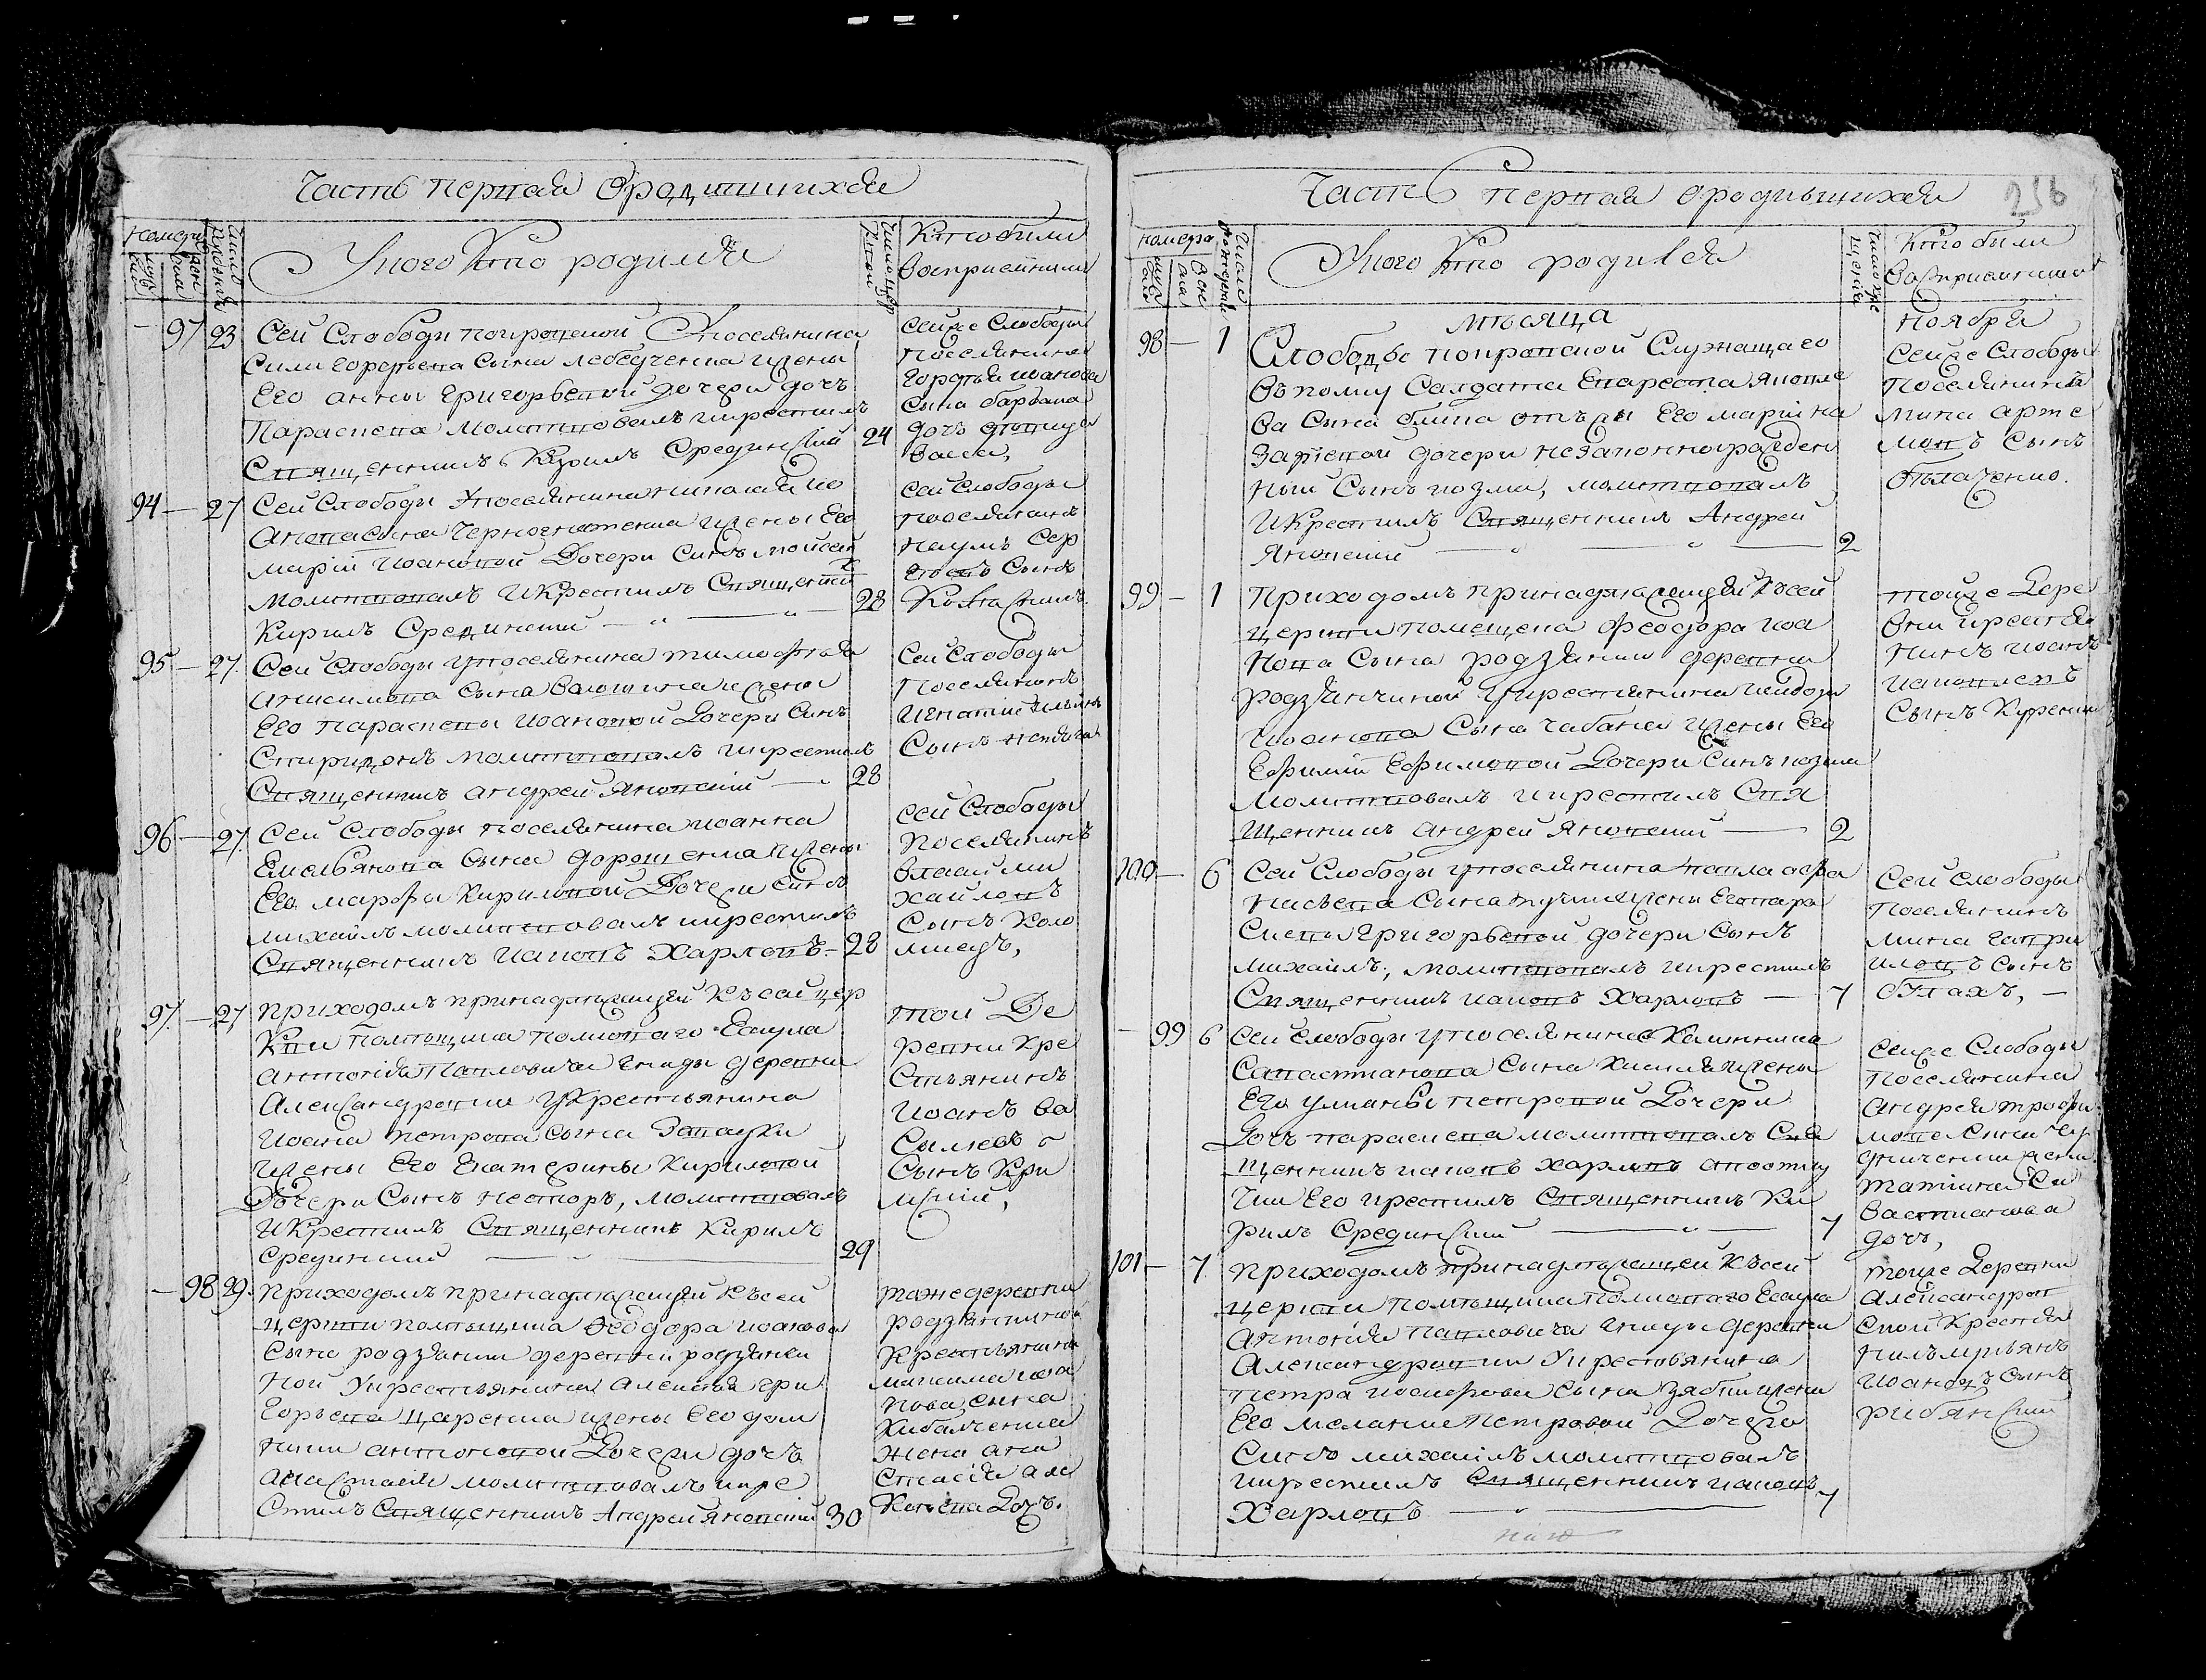 Часть первая ородившихся
Номера
Число рождения
У кого кто родился
Число крещения
Кто были
Восприемники
муж
жен
97 23 Сей Слободы Покровской У поселянина
Силы Гордѣева Сына Лебедченка и жены
Его Анны Григорьевой дочери дочь
Параскева Молитвовалъ и крестилъ
Священникъ Кирилъ Срединский 24
сей же Слободы
Поселянина
Гордѣя Иванова
Сына
дочь
94 — 27 Сей Слободы У поселянина Николая Ио
анова Сына Черногноженка и жены Его
Маріи Иоановой Дочери Синъ Моисей
Молитвовалъ и Крестилъ Священник
Кирилъ Срединский — 28
сей Слободы
поселянинъ
Наумъ Сер
геевъ Сынъ
95 — 27. Сей Слободы У поселянина Тимофея
Анисимова Сына Волошина и жены
Его Параскевы Иоановой Дочери Синъ
Спиридонъ молитвовалъ и крестилъ
Священникъ Андрей Яновский — 28
Сей Слободы
Поселянинъ
Игнатий Ильинъ
Сынъ
96 — 27. Сей Слободы поселянина Иоанна
Емельянова Сына Дорошенка и жены
Его Марфы Кириловой Дочери Синъ
Михаилъ молитвовалъ и крестилъ
Священникъ Иаковъ Харловъ — 28
сей Слободы
Поселянинъ
Власий Ми
хайловъ
Сынъ Коло
миецъ,
97. — 27 Приходомъ принадлежащей Къ сей цер
Кви Помѣщика полковаго Есаула
Антонія Павловича Гниды деревни
Александровки У Крестьянина
Иоана Петрова Сына Запауки
и жены Его Екатерины Кириловой
Дочери Сынъ Несторъ, молитвовалъ
и Крестилъ Священникъ Кирилъ
Срединский — 29
той Де
ревни Кре
стьянинъ
Иоанъ Ва
Силіевъ
Сынъ Кри
мский,
— 98 29. Приходомъ принадлежащей Къ сей
церкви помѣщика Феодора Иоанова
Сына Родзянки деревни Родзянки
ной У крестьянина Алексѣя Гри
горьева Царенка и жены Его Дом
ники Антоновой Дочери дочь
Анастасія молитвовалъ и кре
Стилъ Священникъ Андрей Яновский 30
тоже деревни
Родзянкиной
Крестьянина
Максима Иоа
нова сына
Кибалченка
Жена Ана
стасія Але
Дочь.
Часть Первая ородившихся
256
Номера
Число рождения
У кого кто родился
Число крещения
Кто были
Восприемники
муж
жен
мѣсяца
Ноября
98 — 1 Слободы Покровской Служащаго
въ полку Салдата Евареста Яковле
ва Сына Блина отъ Его Марии На
заріевой Дочери незаконнорожден
ный Сынъ Козма, молитвовалъ
и Крестилъ Священникъ Андрей
Яновский — 2
Сей же Слободы
Поселянинъ
Мина Арте
мовъ Сынъ
99 — 1 Приходомъ принадлежащей Къ сей
церкви помѣщика Феодора Иоа
нова Сына Родзянки деревни
Родзянкиной У крестьянина
Иоанова Сына Чабана и жены Его
Ефиміи Ефимовой Дочери Синъ Козма
Молитвовалъ и крестилъ Свя
щенникъ Андрей Яновский — 2
той же Дере
вни крестья
нинъ Иоанъ
Иаковлевъ
Сынъ
100 — 6 Сей Слободы У поселянина Павла Афа
насьева Сына и жены Его Пара
скевы Григорьевой Дочери Сынъ
Михаилъ, молитвовалъ и крестилъ
Священникъ Иаковъ Харловъ — 7
Сей Слободы
Поселянинъ
Мина Гаври
иловъ Сынъ
— 99 6 Сей Слободы У поселянина Калинника
Савастианова Сына и жены
Его Улианы Петровой Дочери
Дочь Параскева молитвовалъ Свя
щенникъ Иаковъ Харловъ
Его крестилъ Священникъ Ки
рилъ Срединский — 7
Сей же Слободы
Поселянина
Андрея Трофи
мова Сына
Татиана Са
вастианова
дочь,
101 — 7. Приходомъ Принадлежащей Къ сей
церкви помѣщика Полковаго Есаула
Антонія Павловича Гниды деревни
Александровки У крестьянина
Петра Иосифова Сына и жены
Его Мелании Петровой Дочери
Синъ Михаилъ молитвовалъ
и крестилъ Священникъ Иаковъ
Харловъ — 7
той же Деревни
Александров
ской Крестья
нинъ
Иоановъ Сынъ